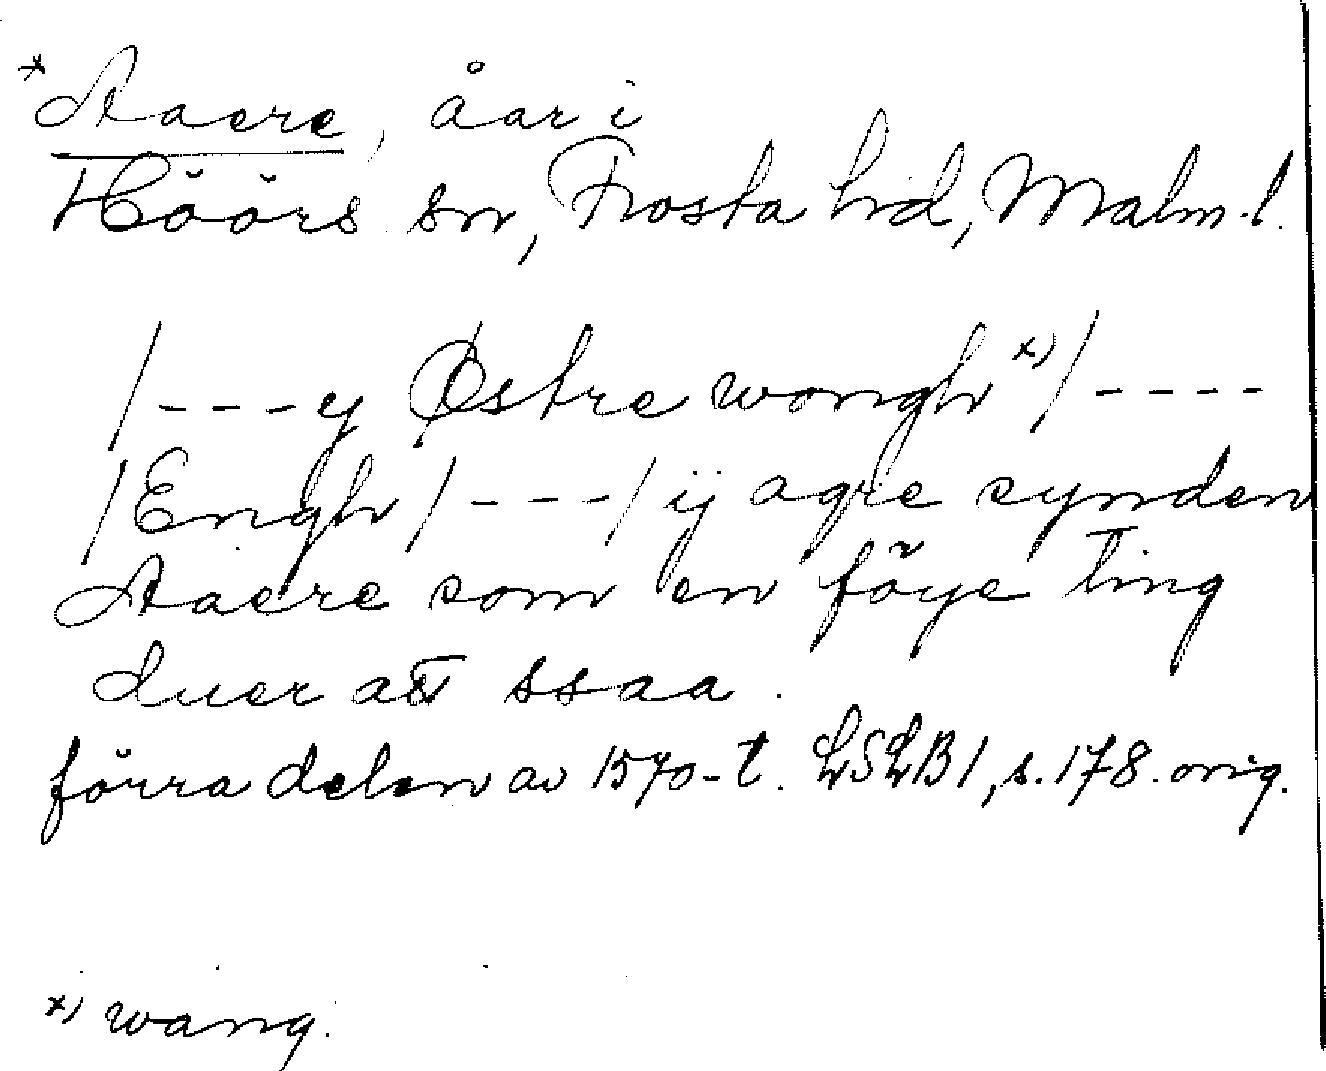 *Aaere, åar i
Höörs sn, Frosta hd, Malm.l.
/---y Østre wongh x)/----
/Engh/---/ ij agre synden
Aaere som en föye ting
duer att ssaa.
förra delen av 1570-t. LSLB1, s.178. orig.
x) wang.